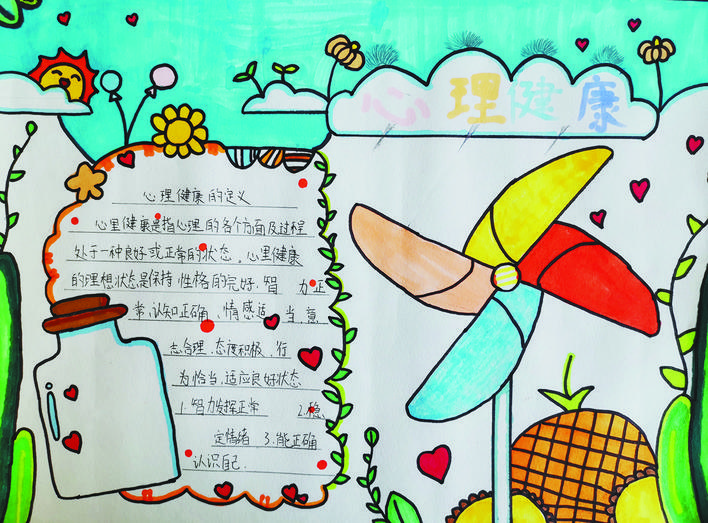 心理健康
心理健康的定义
心里健康是指心理的各个方面及过程
处于一种良好或正常的状态。心里健康
的理想状态是保持性格的完好、智力正
常、认知正确、情感适当、意
志合理、态度积极、行
为恰当、适应良好状态
1. 智力发挥正常 2.稳
定情绪 3.能正确
认识自己.